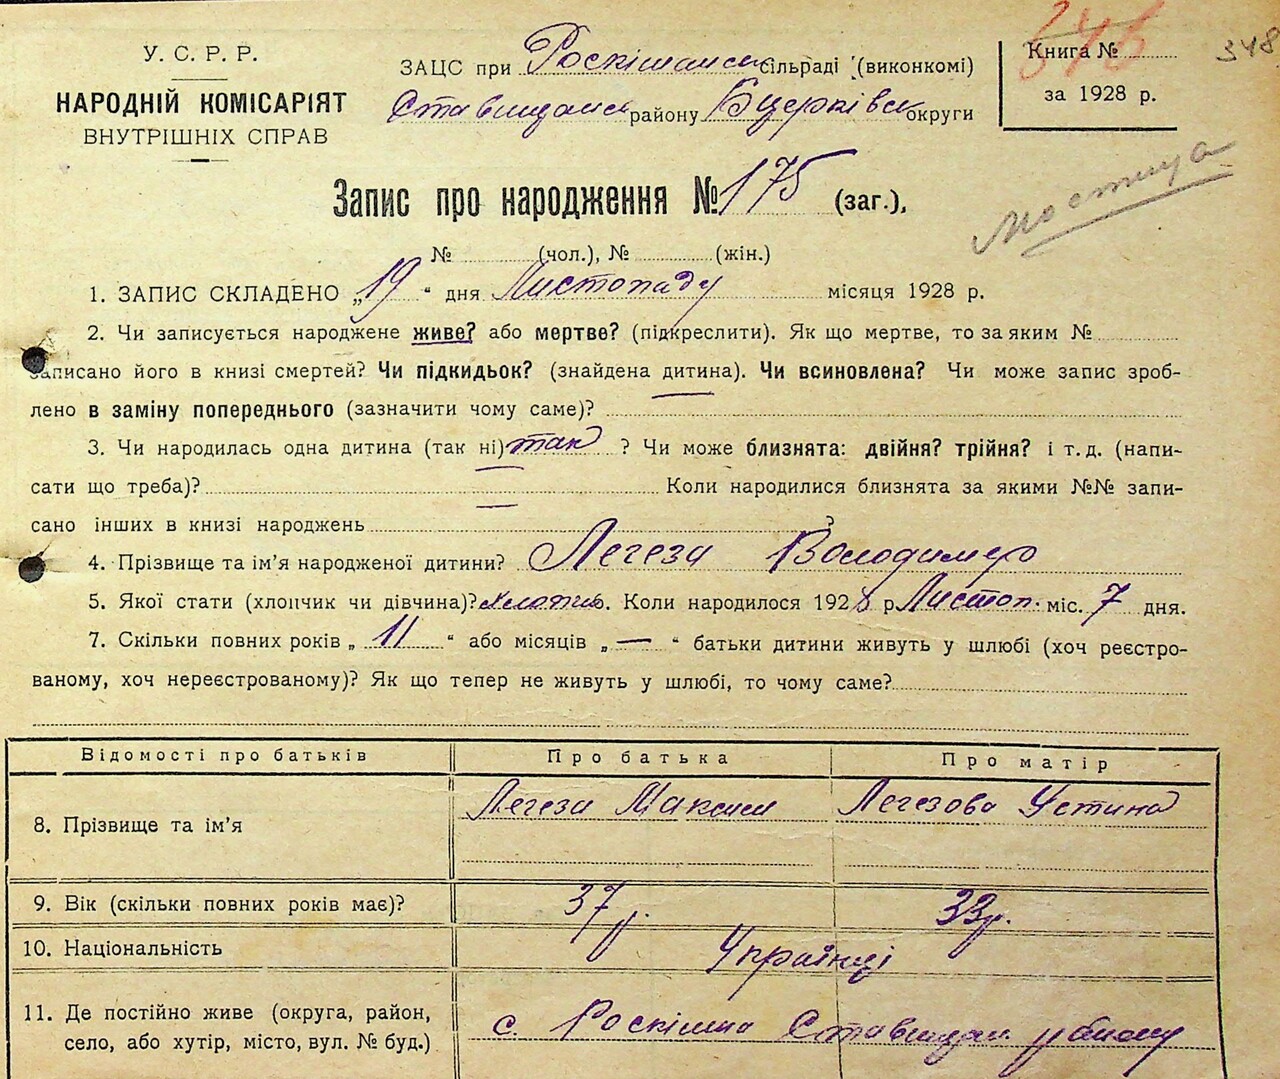 У. С. Р. Р.
НАРОДНІЙ КОМІСАРІЯТ
ВНУТРІШНІХ СПРАВ
ЗАЦС при Роскішанск сільраді (виконкомі)
Ставищанск району Бцерківск округи
Книга № 348
348
за 1928 р.
Запис про народження № 175 (заг.),
№ (чол.), № (жін.)
1. ЗАПИС СКЛАДЕНО „19“ дня Листопаду місяця 1928 р.
2. Чи записується народжене живе? або мертве? (підкреслити). Як що мертве, то за яким №
записано його в книзі смертей? Чи підкидьок? (знайдена дитина). Чи всиновлена? Чи може запис зроб-
лено в заміну попереднього (зазначити чому саме)?
3. Чи народилась одна дитина (так ні) так ? Чи може близнята: двійня? трійня? і т. д. (напи-
сати що треба)? — Коли народилися близнята за якими №№ запи-
сано інших в книзі народжень ?
4. Прізвище та ім'я народженої дитини? Легеза Володимер
5. Якої стати (хлопчик чи дівчина)? хлопчик. Коли народилося 1928 р Листоп. міс. 7 дня.
7. Скільки повних років „11“ або місяців „—“ батьки дитини живуть у шлюбі (хоч реєстро-
ваному, хоч нереєстрованому)? Як що тепер не живуть у шлюбі, то чому саме?
Відомості про батьків Про батька Про матір
8. Прізвище та ім'я Легеза Максим Легезова Устина
9. Вік (скільки повних років має)? 37 р. 33 р.
10. Національність Українці
11. Де постійно живе (округа, район,
село, або хутір, місто, вул. № буд.) с. Роскішна Ставищан. району